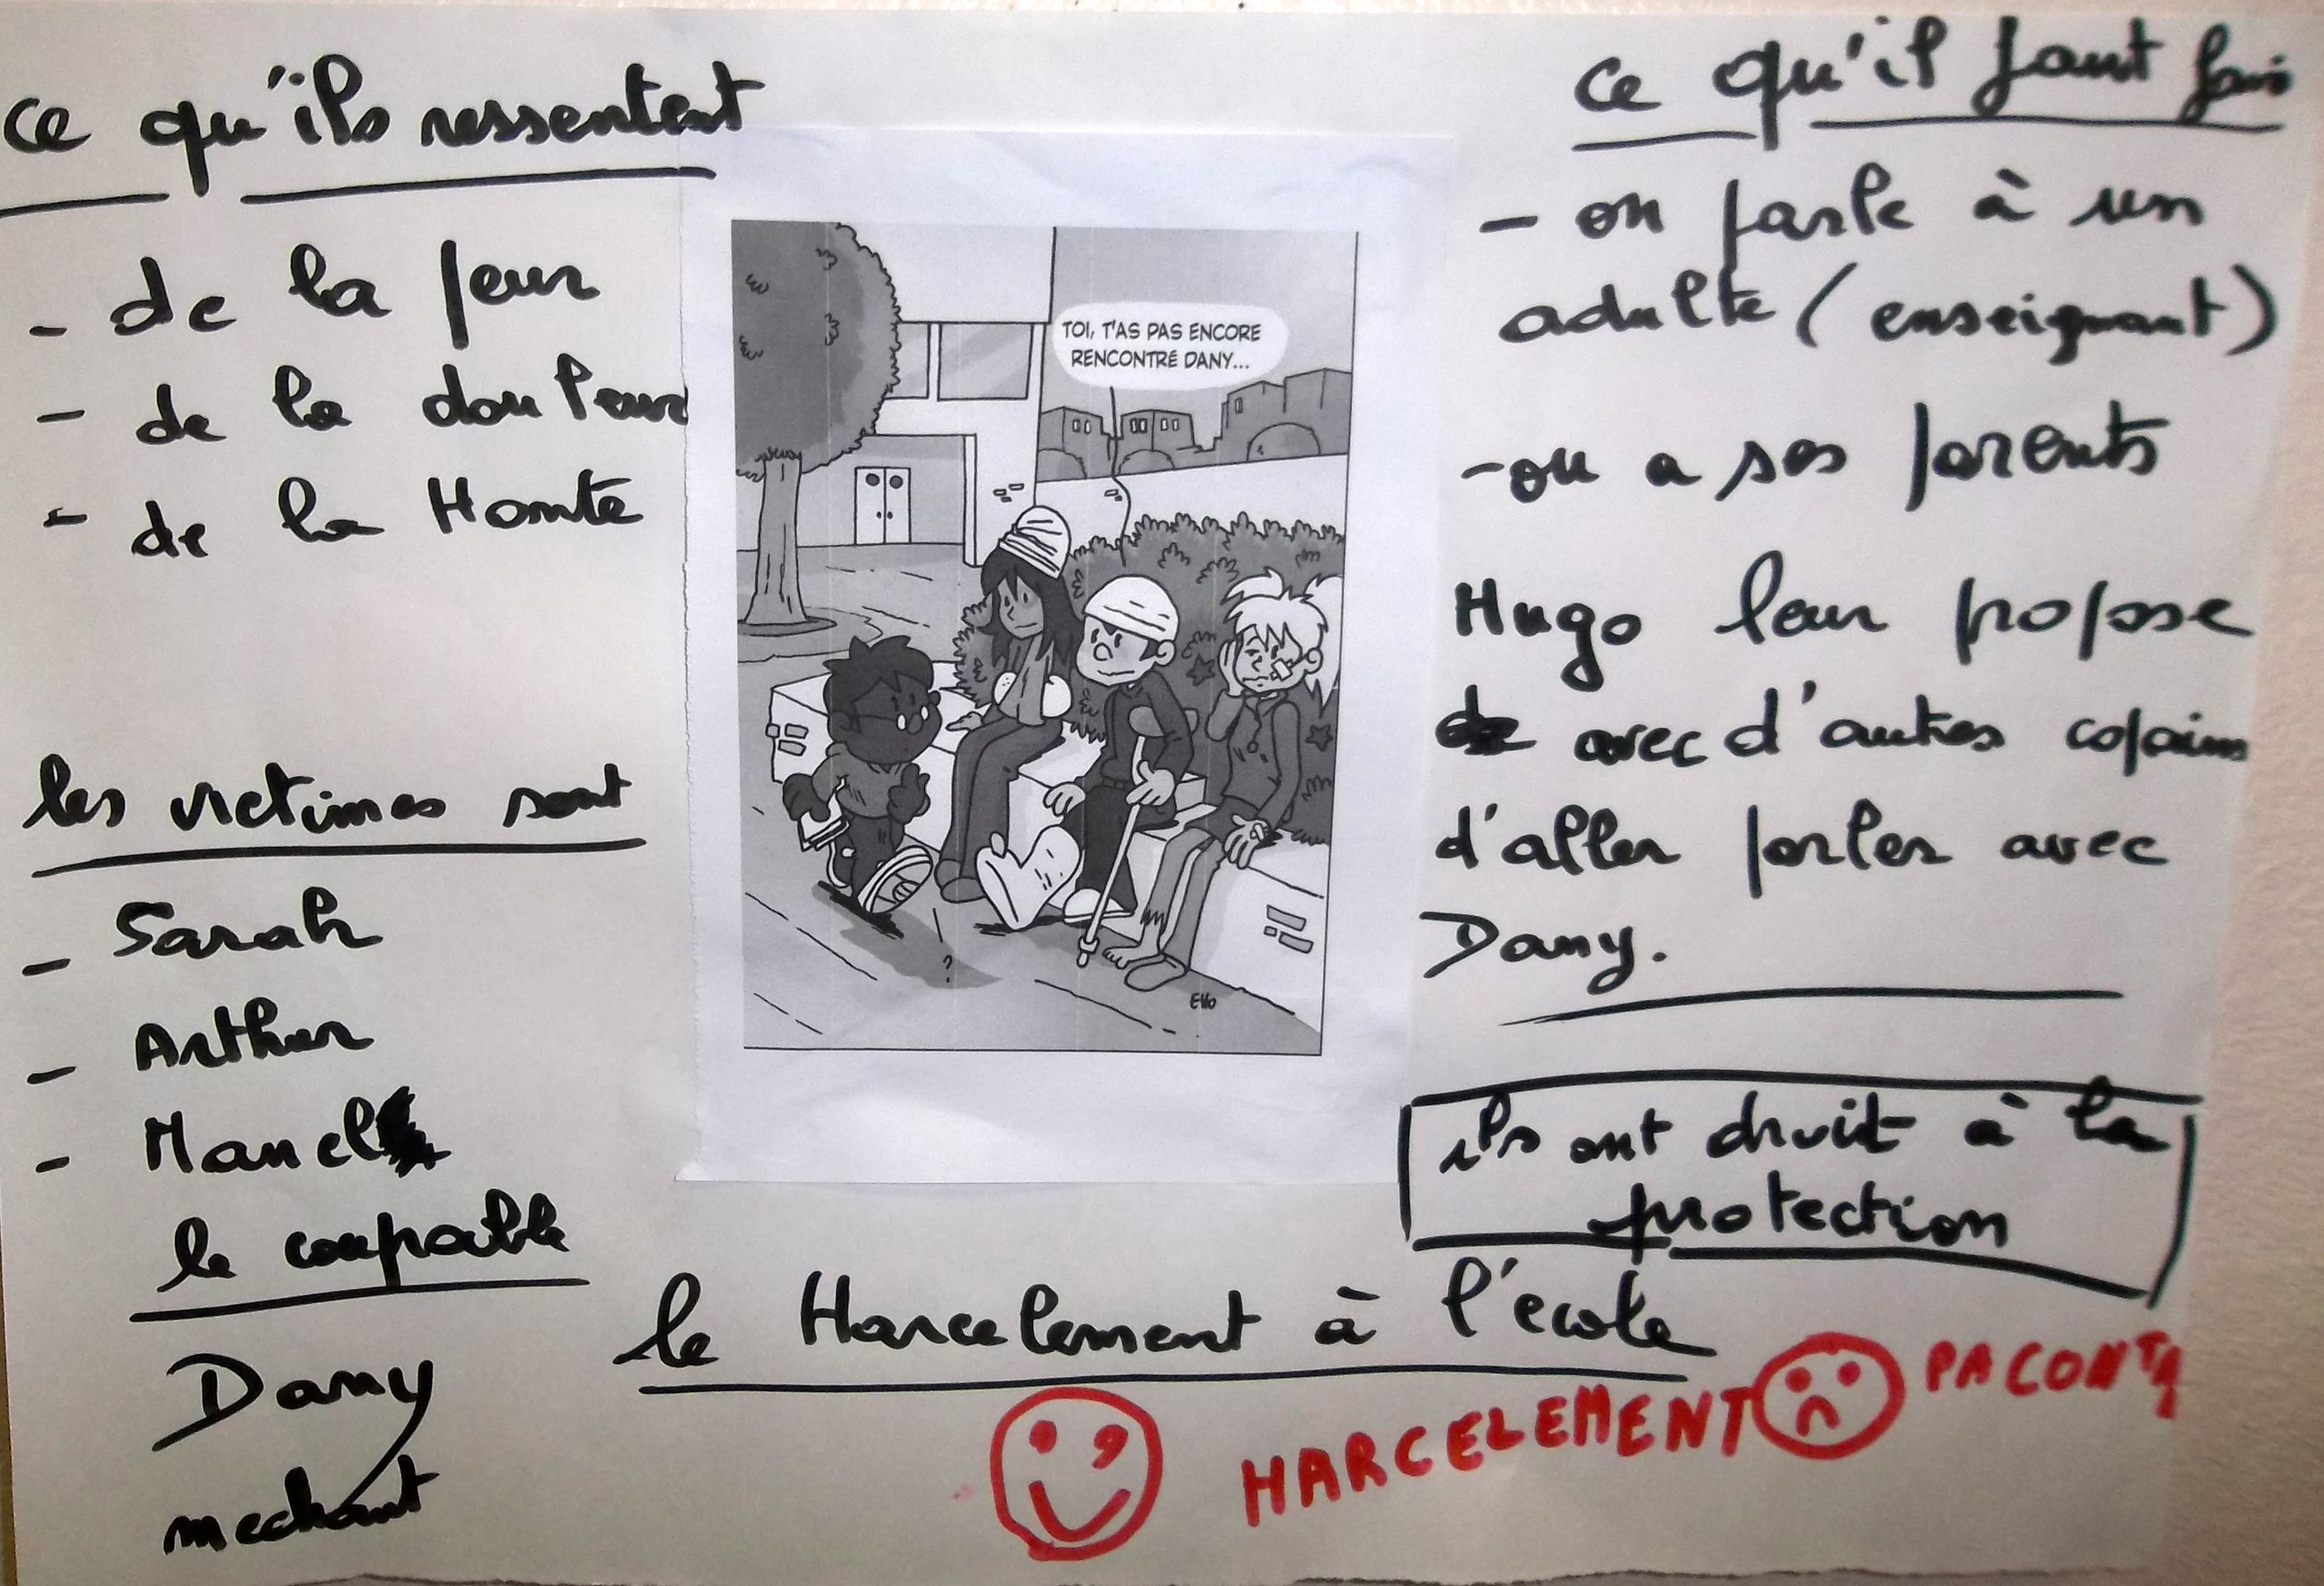 ce qu'ils ressentent
- de la peur
- de la douleur
- de la Honte
les victimes sont
- Sarah
- Arthur
- Manel
le coupable
Dany
mechant
TOI, T'AS PAS ENCORE
RENCONTRÉ DANY...
?
EHO
ce qu'il faut fair
- on parle à un
adulte (enseignant)
- ou a ses parents
Hugo leur propose
avec d'autres copains
d'aller parler avec
Dany.
ils ont droit à la
protection
le Harcelement à l'école
HARCELEMENT PACONTA